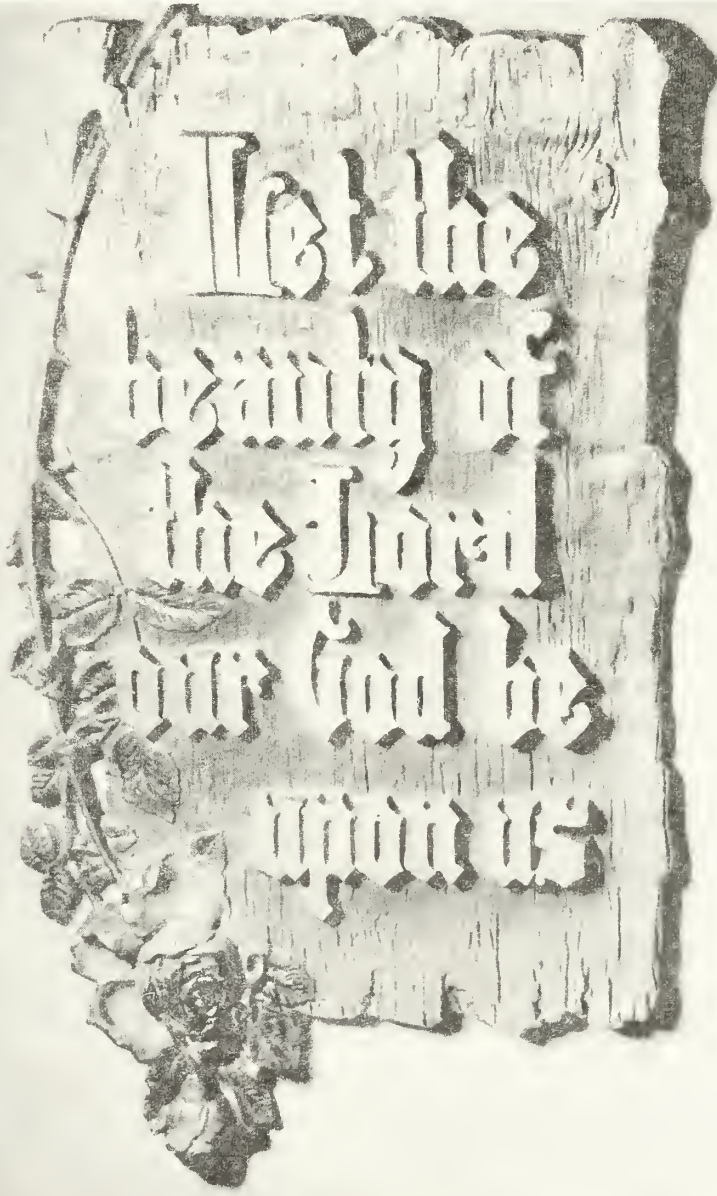 Let the
beauty of
the Lord
our God be
upon us